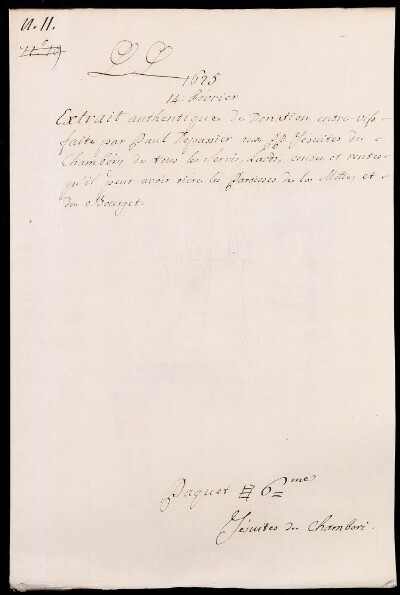 N. 11.
N.° 19
1625
14 fevrier
Extrait authentique de Donation entre vifs
faitte par Paul Depassier aux PP. Jesuites de
Chambéry de tous les servis, Laods, censes et rentes
qu'il peut avoir riére les Paroisses de la Motte, et
du Bourget.
Paquet 6.me
Jésuites de Chamberi.